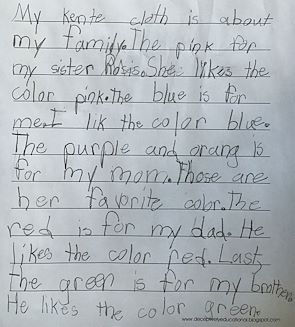 My kente cloth is about
my family. The pink for
my sister Rosis. She likes the
color pink. The blue is for
me. I lik the color blue.
The purple and orang is
for my mom. Those are
her favorite color. The
red is for my dad. He
likes the color red. Last
the green is for my brother.
He likes the color green.
www.decidedlyeducational.blogspot.com